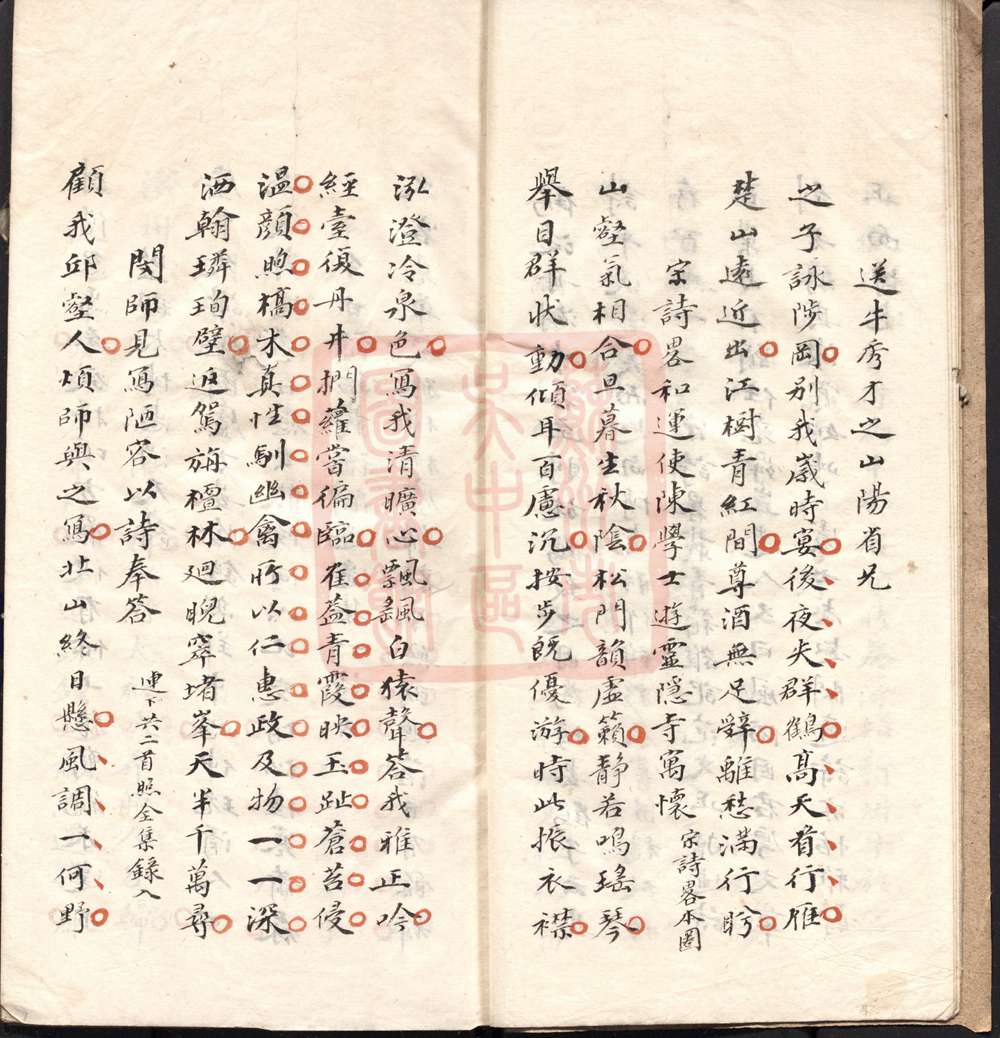 送牛秀才之山陽省兄
之子詠陟岡別我歲時宴後夜失群鶴高天有行雁
楚山遠近出江樹青紅間尊酒無足辭離愁滿行盻
宗詩畧和運使陳學士遊靈隱寺寓懷 宗詩畧不圈
山壑氣相合旦暮生秋陰松門韻虛籟靜若鳴瑤琴
舉目群狀動傾耳百慮沉按步旣優游時此振衣襟
泓澄冷泉色寫我清曠心飄飆白猿聲荅我雅正吟
經臺復丹井捫蘿嘗徧臨崔葢青霞映玉趾蒼苔侵
温顏煦槁木真性馴幽禽所以仁惠政及物一一深
洒翰璘珣壁返駕旃檀林迴睨窣堵峯天半千萬尋
閔師見寫陋容以詩奉答 連下共二首照全集錄入
顧我邱壑人煩師與之寫北山終日懸風調一何野
蘇州市
吳中區
圖書館